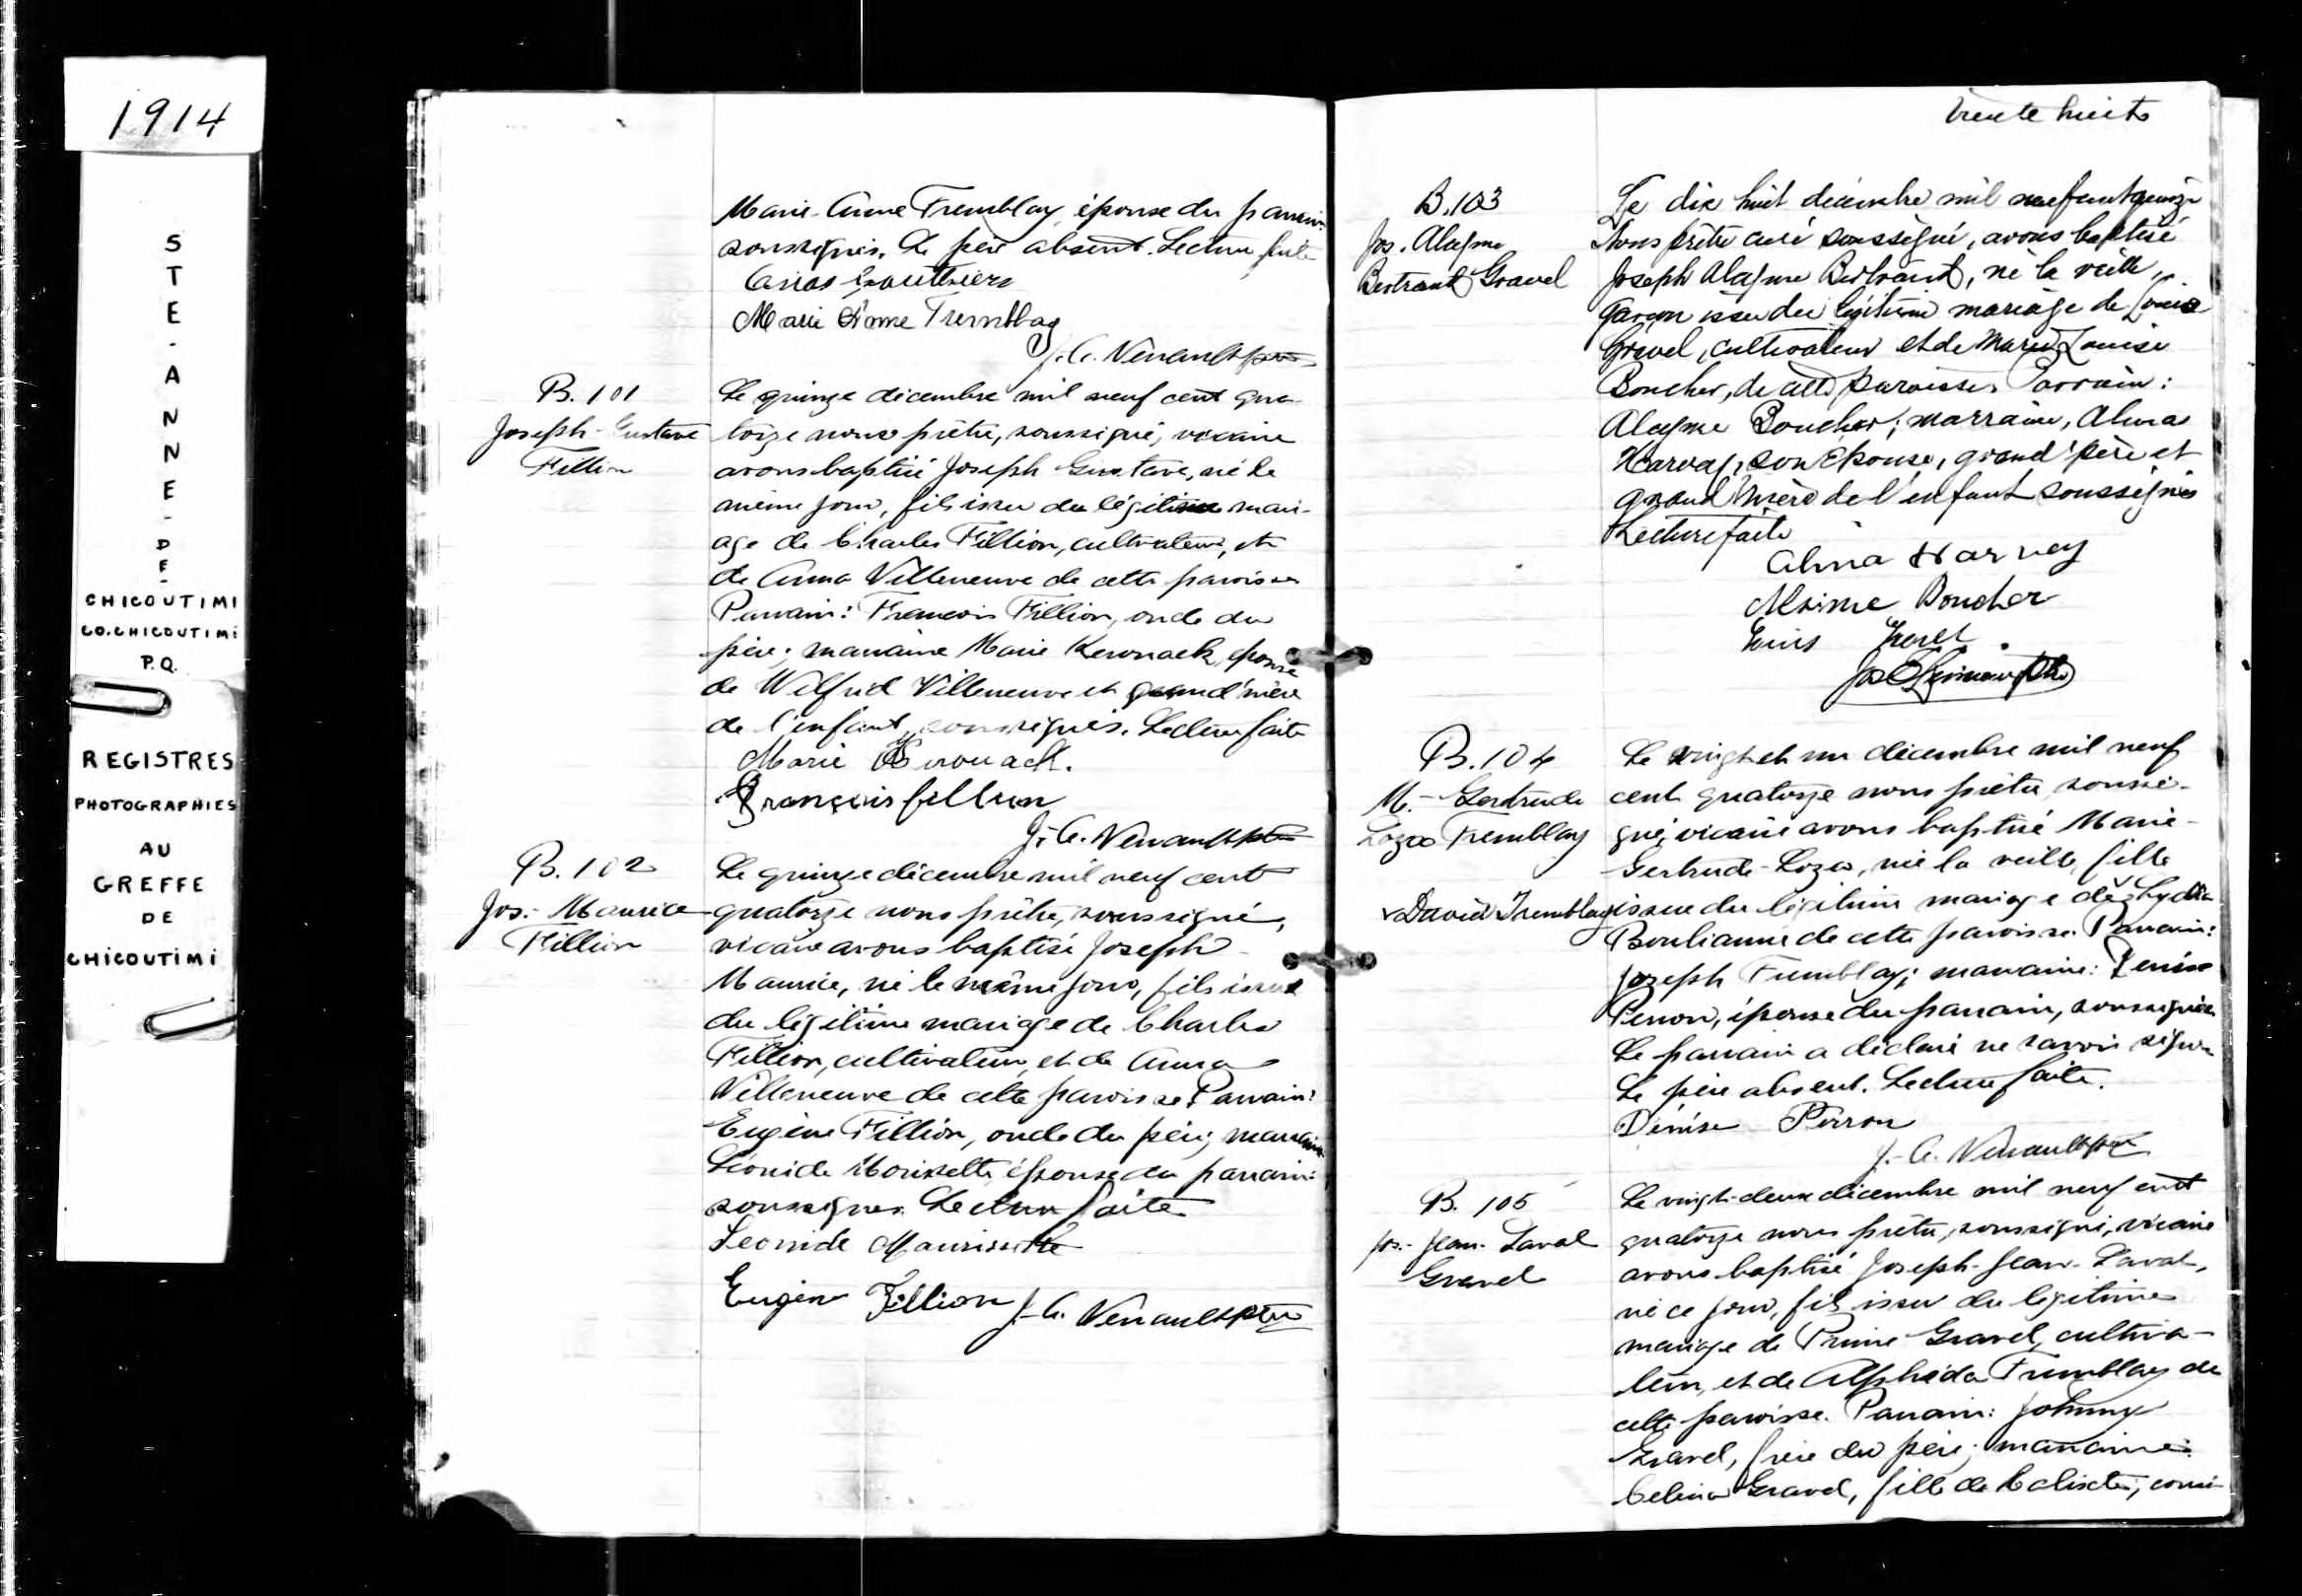 1914
STE-ANNE-DE-
CHICOUTIMI
CO. CHICOUTIMI
P.Q.
REGISTRES
PHOTOGRAPHIES
AU
GREFFE
DE
CHICOUTIMI
Marie-Anne Tremblay, épouse du parrain
soussignés. Le père absent. Lecture faite
Gauthier
Marie Anne Tremblay
J.-A. Verrault ptre
B. 101
Joseph-Gustave
Fillion
Le quinze décembre mil neuf cent qua-
torze nous prêtre, soussigné, vicaire
avons baptisé Joseph Gustave, né le
même jour, fils issu du légitime mari-
age de Charles Fillion, cultivateur, et
de Anna Villeneuve de cette paroisse
Parrain: François Fillion, oncle du
père; marraine Marie Kerouack, épouse
de Wilfrid Villeneuve et grand'mère
de l'enfant, soussignés. Lecture faite
Marie Kirouack.
François fillion
J.-A. Verrault ptre
B. 102
Jos.- Maurice
Fillion
Le quinze décembre mil neuf cent
quatorze nous prêtre, soussigné,
vicaire avons baptisé Joseph
Maurice, né le même jour, fils issu
du légitime mariage de Charles
Fillion, cultivateur, et de Anna
Villeneuve de cette paroisse Parrain:
Eugène Fillion, oncle du père; marraine
Léonide Morissette, épouse du parrain:
soussignés. Lecture faite
Leonide Maurissette
Eugène Fillion J.-A. Verrault ptre
trente huit
B. 103
Jos.
Bertrand Gravel
Le dix huit décembre mil neuf cent quatorze
Nous prêtre curé soussigné, avons baptisé
Joseph Bertrand, né la veille,
garçon issu du légitime mariage de Louis
Gravel, cultivateur et de Marie Louise
Boucher, de cette paroisse. Parrain:
Boucher; marraine, Alma
Harvey, son épouse, grand'père et
grand'mère de l'enfant soussignés
Lecture faite
Alma Harvey
Boucher
Louis Gravel
B. 104
M.- Gertrude
Loza Tremblay
David Tremblay
Le vingt et un décembre mil neuf
cent quatorze nous prêtre soussi-
gné, vicaire avons baptisé Marie-
Gertrude-Loza, née la veille, fille
issue du légitime mariage de Lydia
Boulianne de cette paroisse. Parrain:
Joseph Tremblay; marraine: Denise
Perron, épouse du parrain, soussignée
Le parrain a déclaré ne savoir signer
Le père absent. Lecture faite.
Dénise Perron
J.-A. Verrault ptre
B. 105
Jos.- Jean- Laval
Gravel
Le vingt-deux décembre mil neuf cent
quatorze nous prêtre, soussigné, vicaire
avons baptisé Joseph-Jean-Laval,
né ce jour, fils issu du légitime
mariage de Prime Gravel, cultiva-
teur, et de Alphéda Tremblay de
cette paroisse. Parrain: Johnny
Gravel, frère du père; marraine:
Celina Gravel, fille de Calixte,